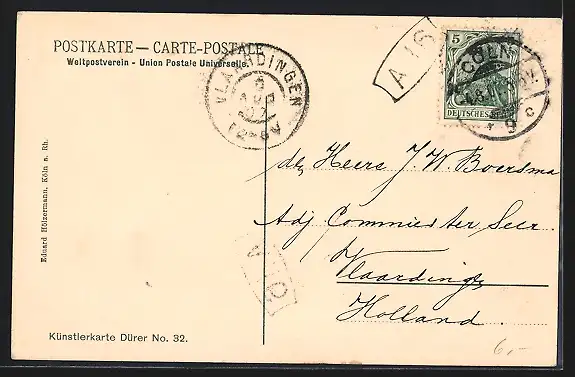 POSTKARTE — CARTE-POSTALE
Weltpostverein - Union Postale Universelle.
VLAARDINGEN
A 16
5
CÖLN
DEUTSCHES REICH
9 c
den Heere J. W. Boersma
Adj Commies ter Secr.
Vlaardingen
Holland.
Eduard Hölzermann, Köln a. Rh.
Künstlerkarte Dürer No. 32.
6,-